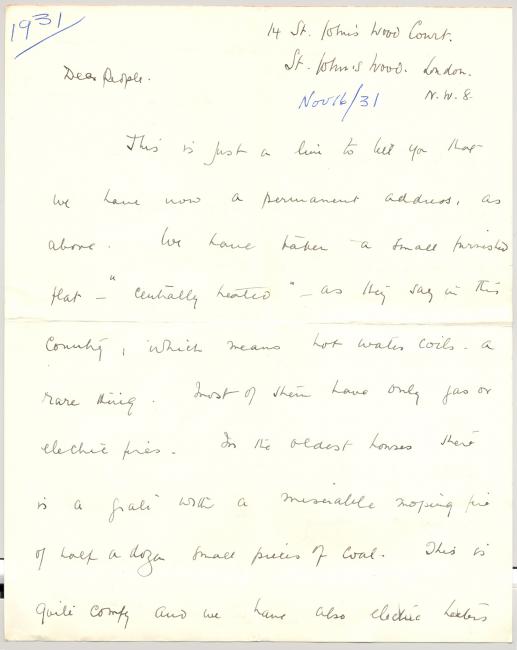 1931
14 St. John's Wood Court.
St. John's Wood. London.
N.W.8.
Nov 16/31
Dear People.
This is just a line to tell you that
we have now a permanent address, as
above. We have taken a small furnished
flat – "centrally heated" – as they say in this
country, which means hot water coils. a
rare thing. Most of them have only gas or
electric fires. In the oldest houses there
is a grate with a miserable moping fire
of half a dozen small pieces of coal. This is
quite comfy and we have also electric heaters